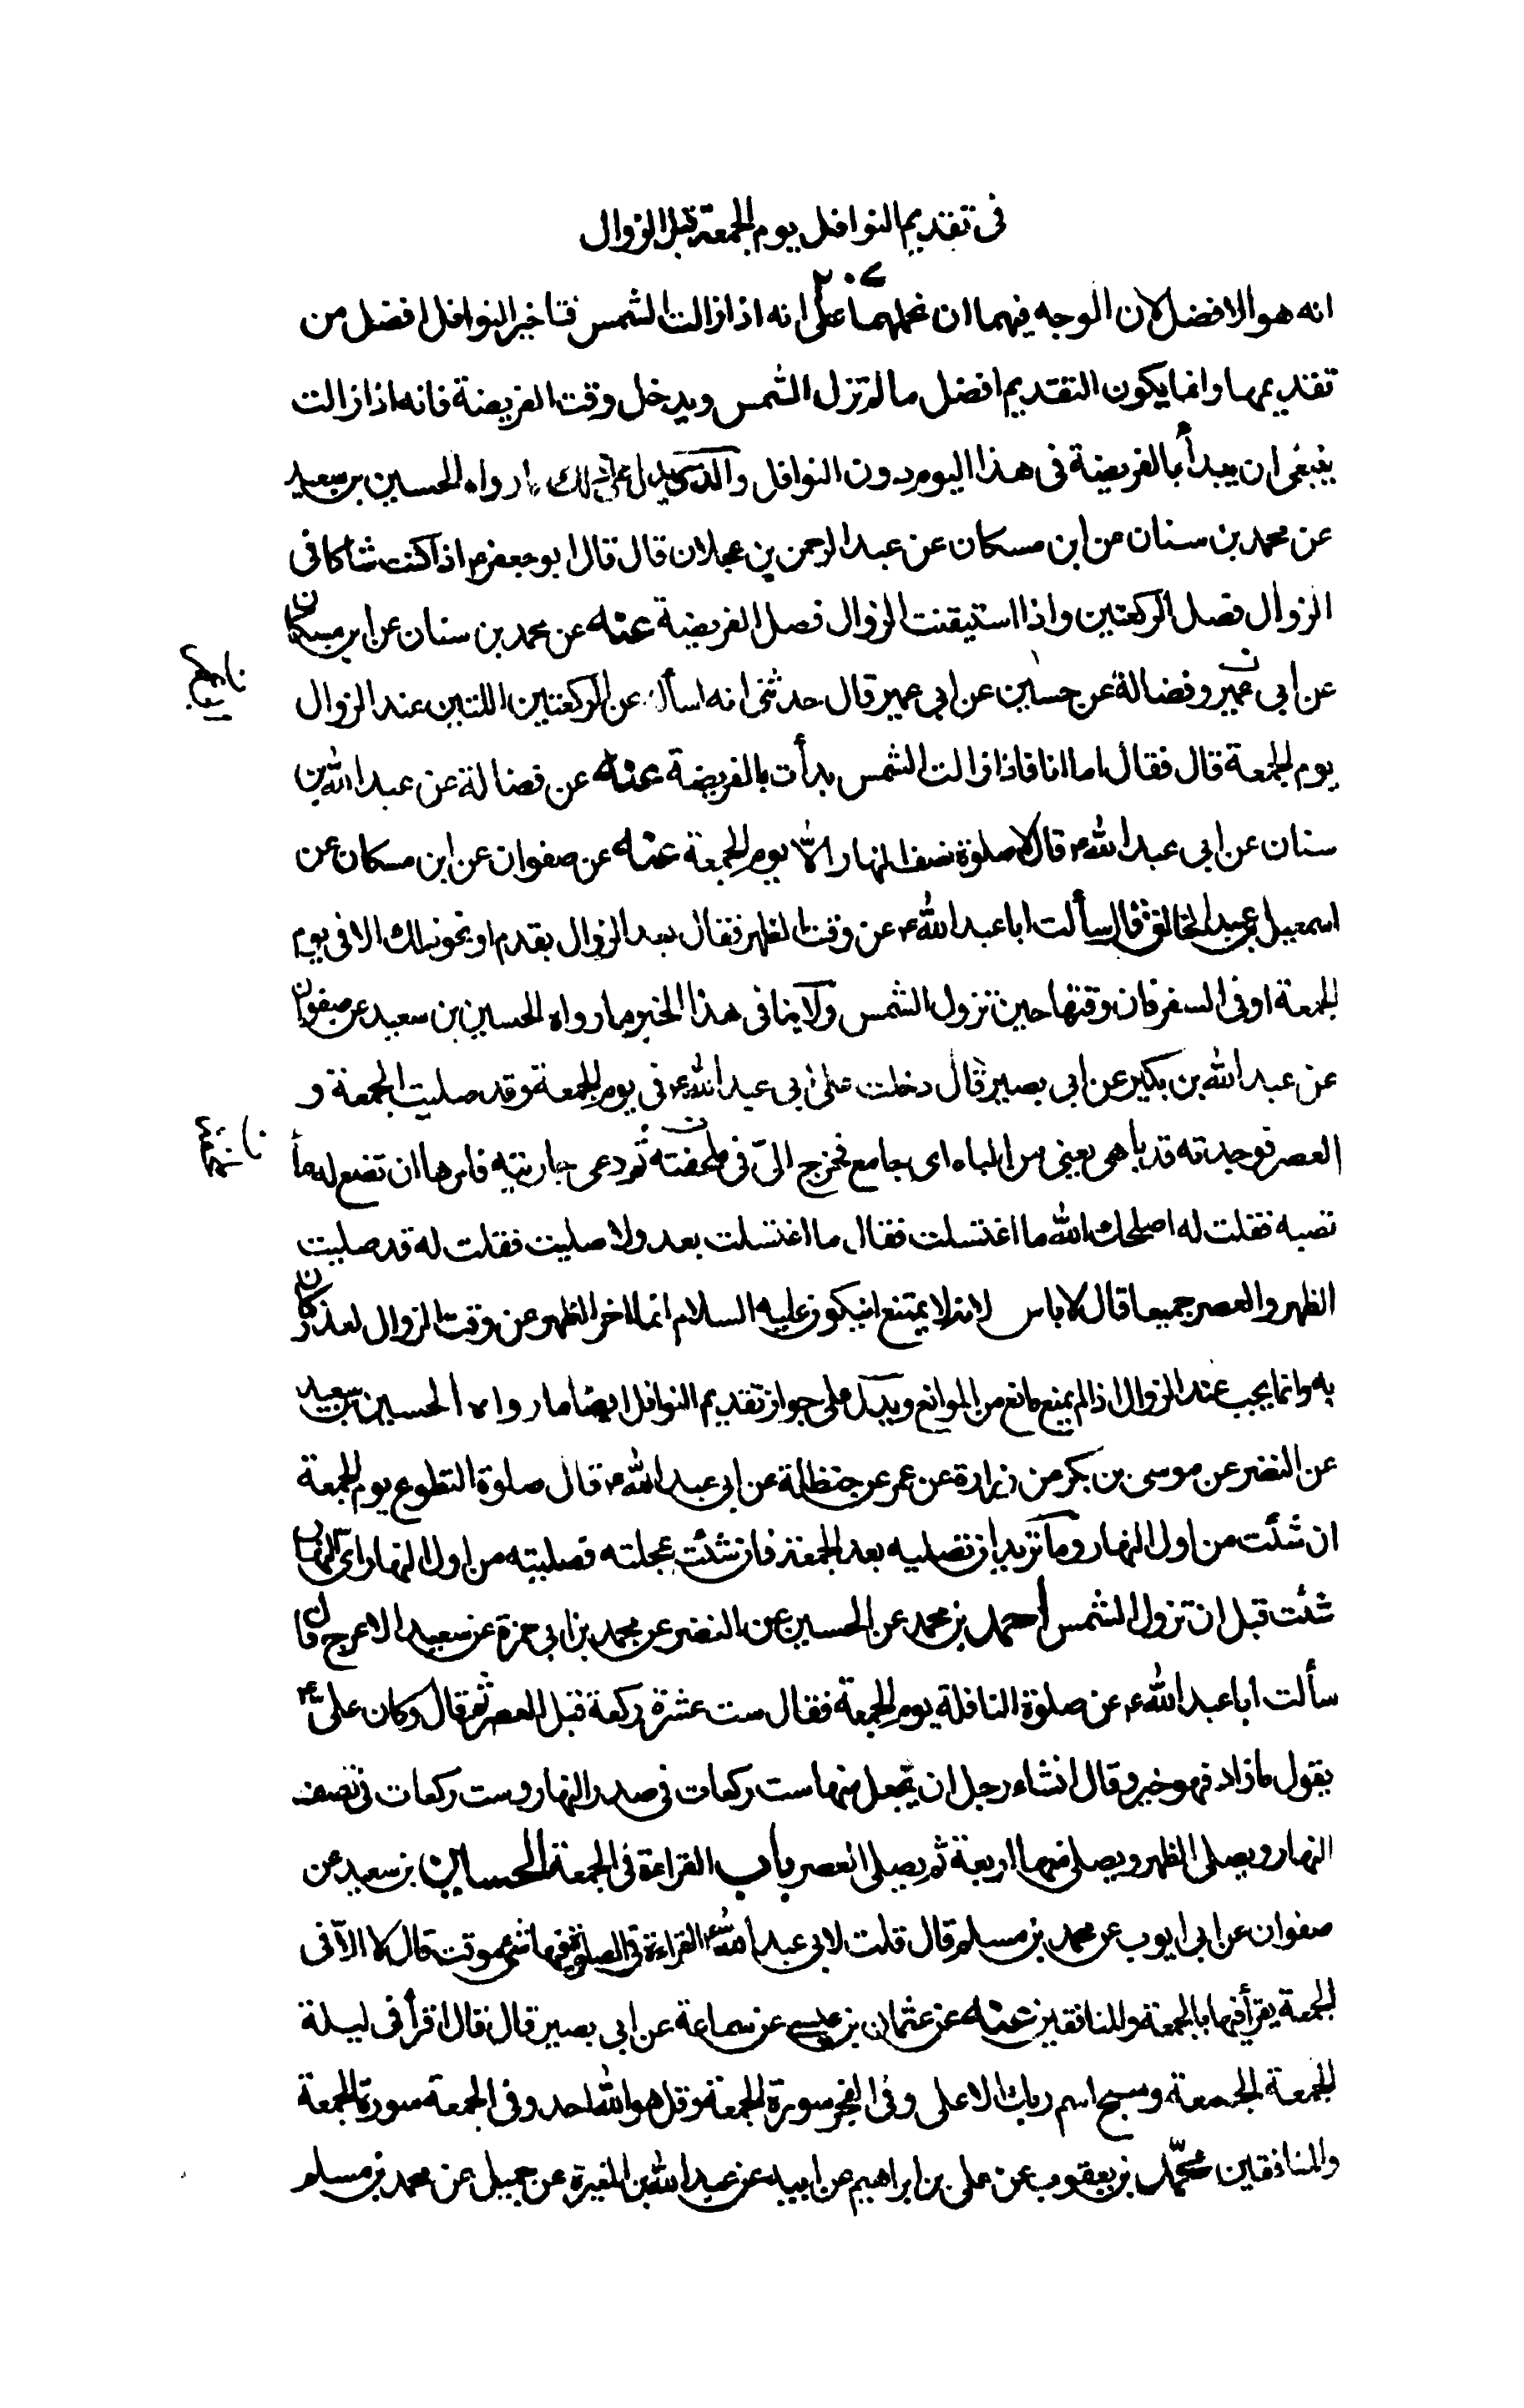 فى تقديم النوافل يوم الجمعة قبل الزوال
٢٠٧
انه هو الافضل لان الوجه فيهما ان نحملهما على انه اذا زالت الشمس فتاخير النوافل افضل من
تقديمها وانما يكون التقديم افضل ما لم تزل الشمس ويدخل وقت الفريضة فانه اذا زالت
ينبغى ان يبدأ بالفريضة فى هذا اليوم دون النوافل والذى يدل على ذلك ما رواه الحسين بن سعيد
عن محمد بن سنان عن ابن مسكان عن عبد الرحمن بن عجلان قال قال ابو جعفر ع اذا كنت شاكا فى
الزوال فصل الركعتين واذا استيقنت الزوال فصل الفريضة عنه عن محمد بن سنان عن ابن مسكان
عن ابى عمير وفضالة عن حسين عن ابى عمير قال حدثنى انه سأله عن الركعتين اللتين عند الزوال
يوم الجمعة قال فقال اما انا فاذا زالت الشمس بدأت بالفريضة عنه عن فضالة عن عبد الله بن
سنان عن ابى عبد الله ع قال لا صلوة نصف النهار الا يوم الجمعة عنه عن صفوان عن ابن مسكان عن
اسمعيل بن عبد الخالق قال سألت ابا عبد الله ع عن وقت الظهر فقال بعد الزوال بقدم او نحو ذلك الا فى يوم
الجمعة او فى السفر فان وقتها حين تزول الشمس ولا ينافى هذا الخبر ما رواه الحسين بن سعيد عن صفوان
عن عبد الله بن بكير عن ابى بصير قال دخلت على ابى عبد الله ع فى يوم الجمعة وقد صليت الجمعة و
العصر فوجدته قد باهى يعنى من الباه اى جامع فخرج الىّ فى ملحفته ثم دعى جاريته فامرها ان تضع له مأ
تصبه فقلت له اصلحك الله ما اغتسلت فقال ما اغتسلت بعد ولا صليت فقلت له قد صليت
الظهر والعصر جميعا قال لا باس لانه لا يمتنع ان يكون عليه السلام انما اخر الظهر عن وقت الزوال لعذر كان
به وانما يجب عند الزوال اذا لم يمنع مانع من الموانع ويدل على جواز تقديم النوافل ايضا ما رواه الحسين بن سعيد
عن النضر عن موسى بن بكر عن زرارة عن عمر عن حنظلة عن ابى عبد الله ع قال صلوة التطوع يوم الجمعة
ان شئت من اول النهار وما تريد ان تصليه بعد الجمعة فان شئت عجلته فصليته من اول النهار اى النهار
شئت قبل ان تزول الشمس احمد بن محمد عن الحسين عن النضر عن محمد بن ابى حمزة عن سعيد الاعرج قال
سألت ابا عبد الله ع عن صلوة النافلة يوم الجمعة فقال ست عشرة ركعة قبل العصر ثم قال وكان على ع
يقول ما زاد فهو خير وقال ان شاء رجل ان يجعل منها ست ركعات فى صدر النهار وست ركعات فى نصف
النهار ويصلى الظهر ويصلى منها اربعة ثم يصلى العصر باب القراءة فى الجمعة الحسين بن سعيد عن
صفوان عن ابى ايوب عن محمد بن مسلم قال قلت لابى عبد الله ع القراءة فى الصلوة فيها شئ موقت قال لا الا فى
الجمعة يقرأ فيها بالجمعة والمنافقين عنه عن عثمان بن عيسى عن سماعة عن ابى بصير قال قال اقرأ فى ليلة
الجمعة الجمعة وسبح اسم ربك الاعلى وفى الفجر سورة الجمعة وقل هو الله احد وفى الجمعة سورة الجمعة
والمنافقين محمد بن يعقوب عن على بن ابراهيم عن ابيه عن عبد الله بن المغيرة عن جميل عن محمد بن مسلم